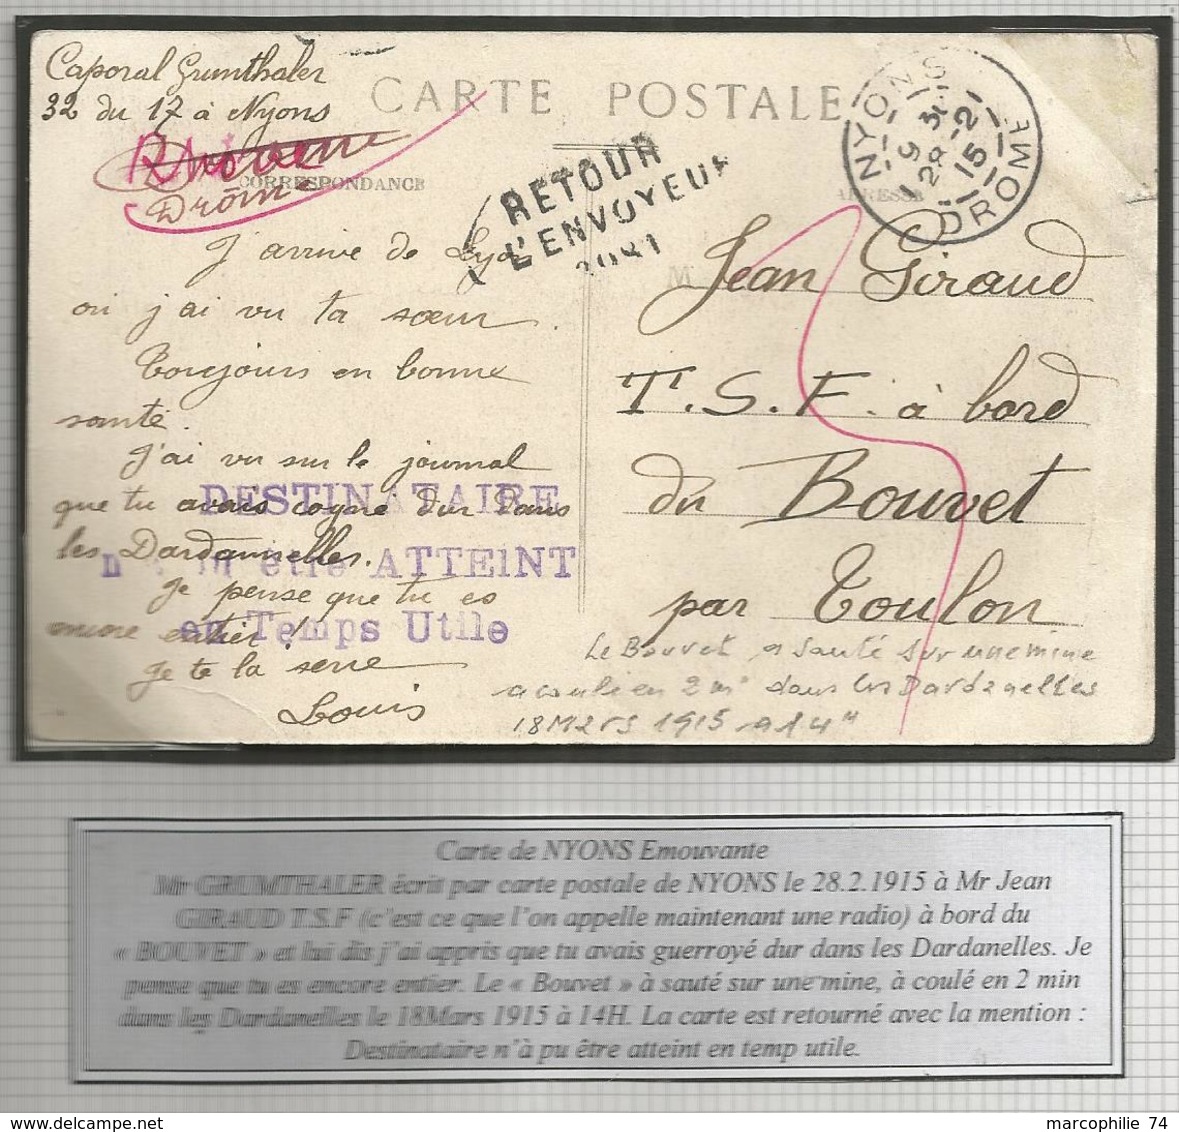 Caporal Grumthaler
32 du 17 à Nyons
Drôme
CARTE POSTALE
CORRESPONDANCE
ADRESSE
RETOUR
L'ENVOYEUR
NYONS
9 30
28 -2
15
DROME
J'arrive de Lyon
où j'ai vu ta sœur.
Toujours en bonne
santé.
J'ai vu sur le journal
que tu avais cogné dur dans
les Dardannelles.
Je pense que tu es
encore entier!
Je te la serre
Louis
DESTINATAIRE
n'a pu être ATTEINT
en Temps Utile
M Jean Giraud
T.S.F. à bord
du Bouvet
par Toulon
Le Bouvet a sauté sur une mine
a coulé en 2 mn dans les Dardanelles
18 Mars 1915 a 14H
Carte de NYONS Emouvante
Mr GRUMTHALER écrit par carte postale de NYONS le 28.2.1915 à Mr Jean
GIRAUD T.S.F (c'est ce que l'on appelle maintenant une radio) à bord du
« BOUVET » et lui dis j'ai appris que tu avais guerroyé dur dans les Dardanelles. Je
pense que tu es encore entier. Le « Bouvet » à sauté sur une mine, à coulé en 2 min
dans les Dardanelles le 18Mars 1915 à 14H. La carte est retourné avec la mention :
Destinataire n'à pu être atteint en temp utile.
www.delcampe.net
marcophilie 74